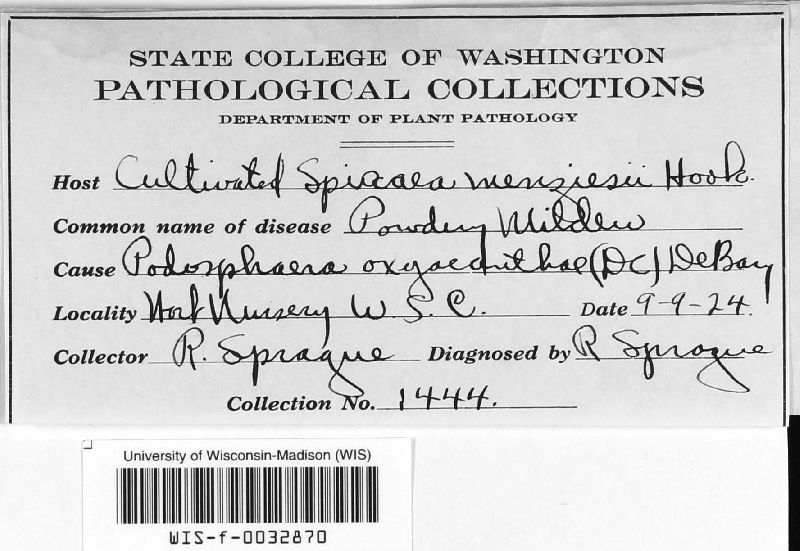 STATE COLLEGE OF WASHINGTON
PATHOLOGICAL COLLECTIONS
DEPARTMENT OF PLANT PATHOLOGY
Host Cultivated Spiraea menziesii Hook.
Common name of disease Powdery Mildew
Cause Podosphaera oxyacanthae (DC) DeBary
Locality Hort Nursery W. S. C. Date 9-9-24.
Collector R. Sprague Diagnosed by R Sprague
Collection No. 1444.
University of Wisconsin-Madison (WIS)
WIS-f-0032870